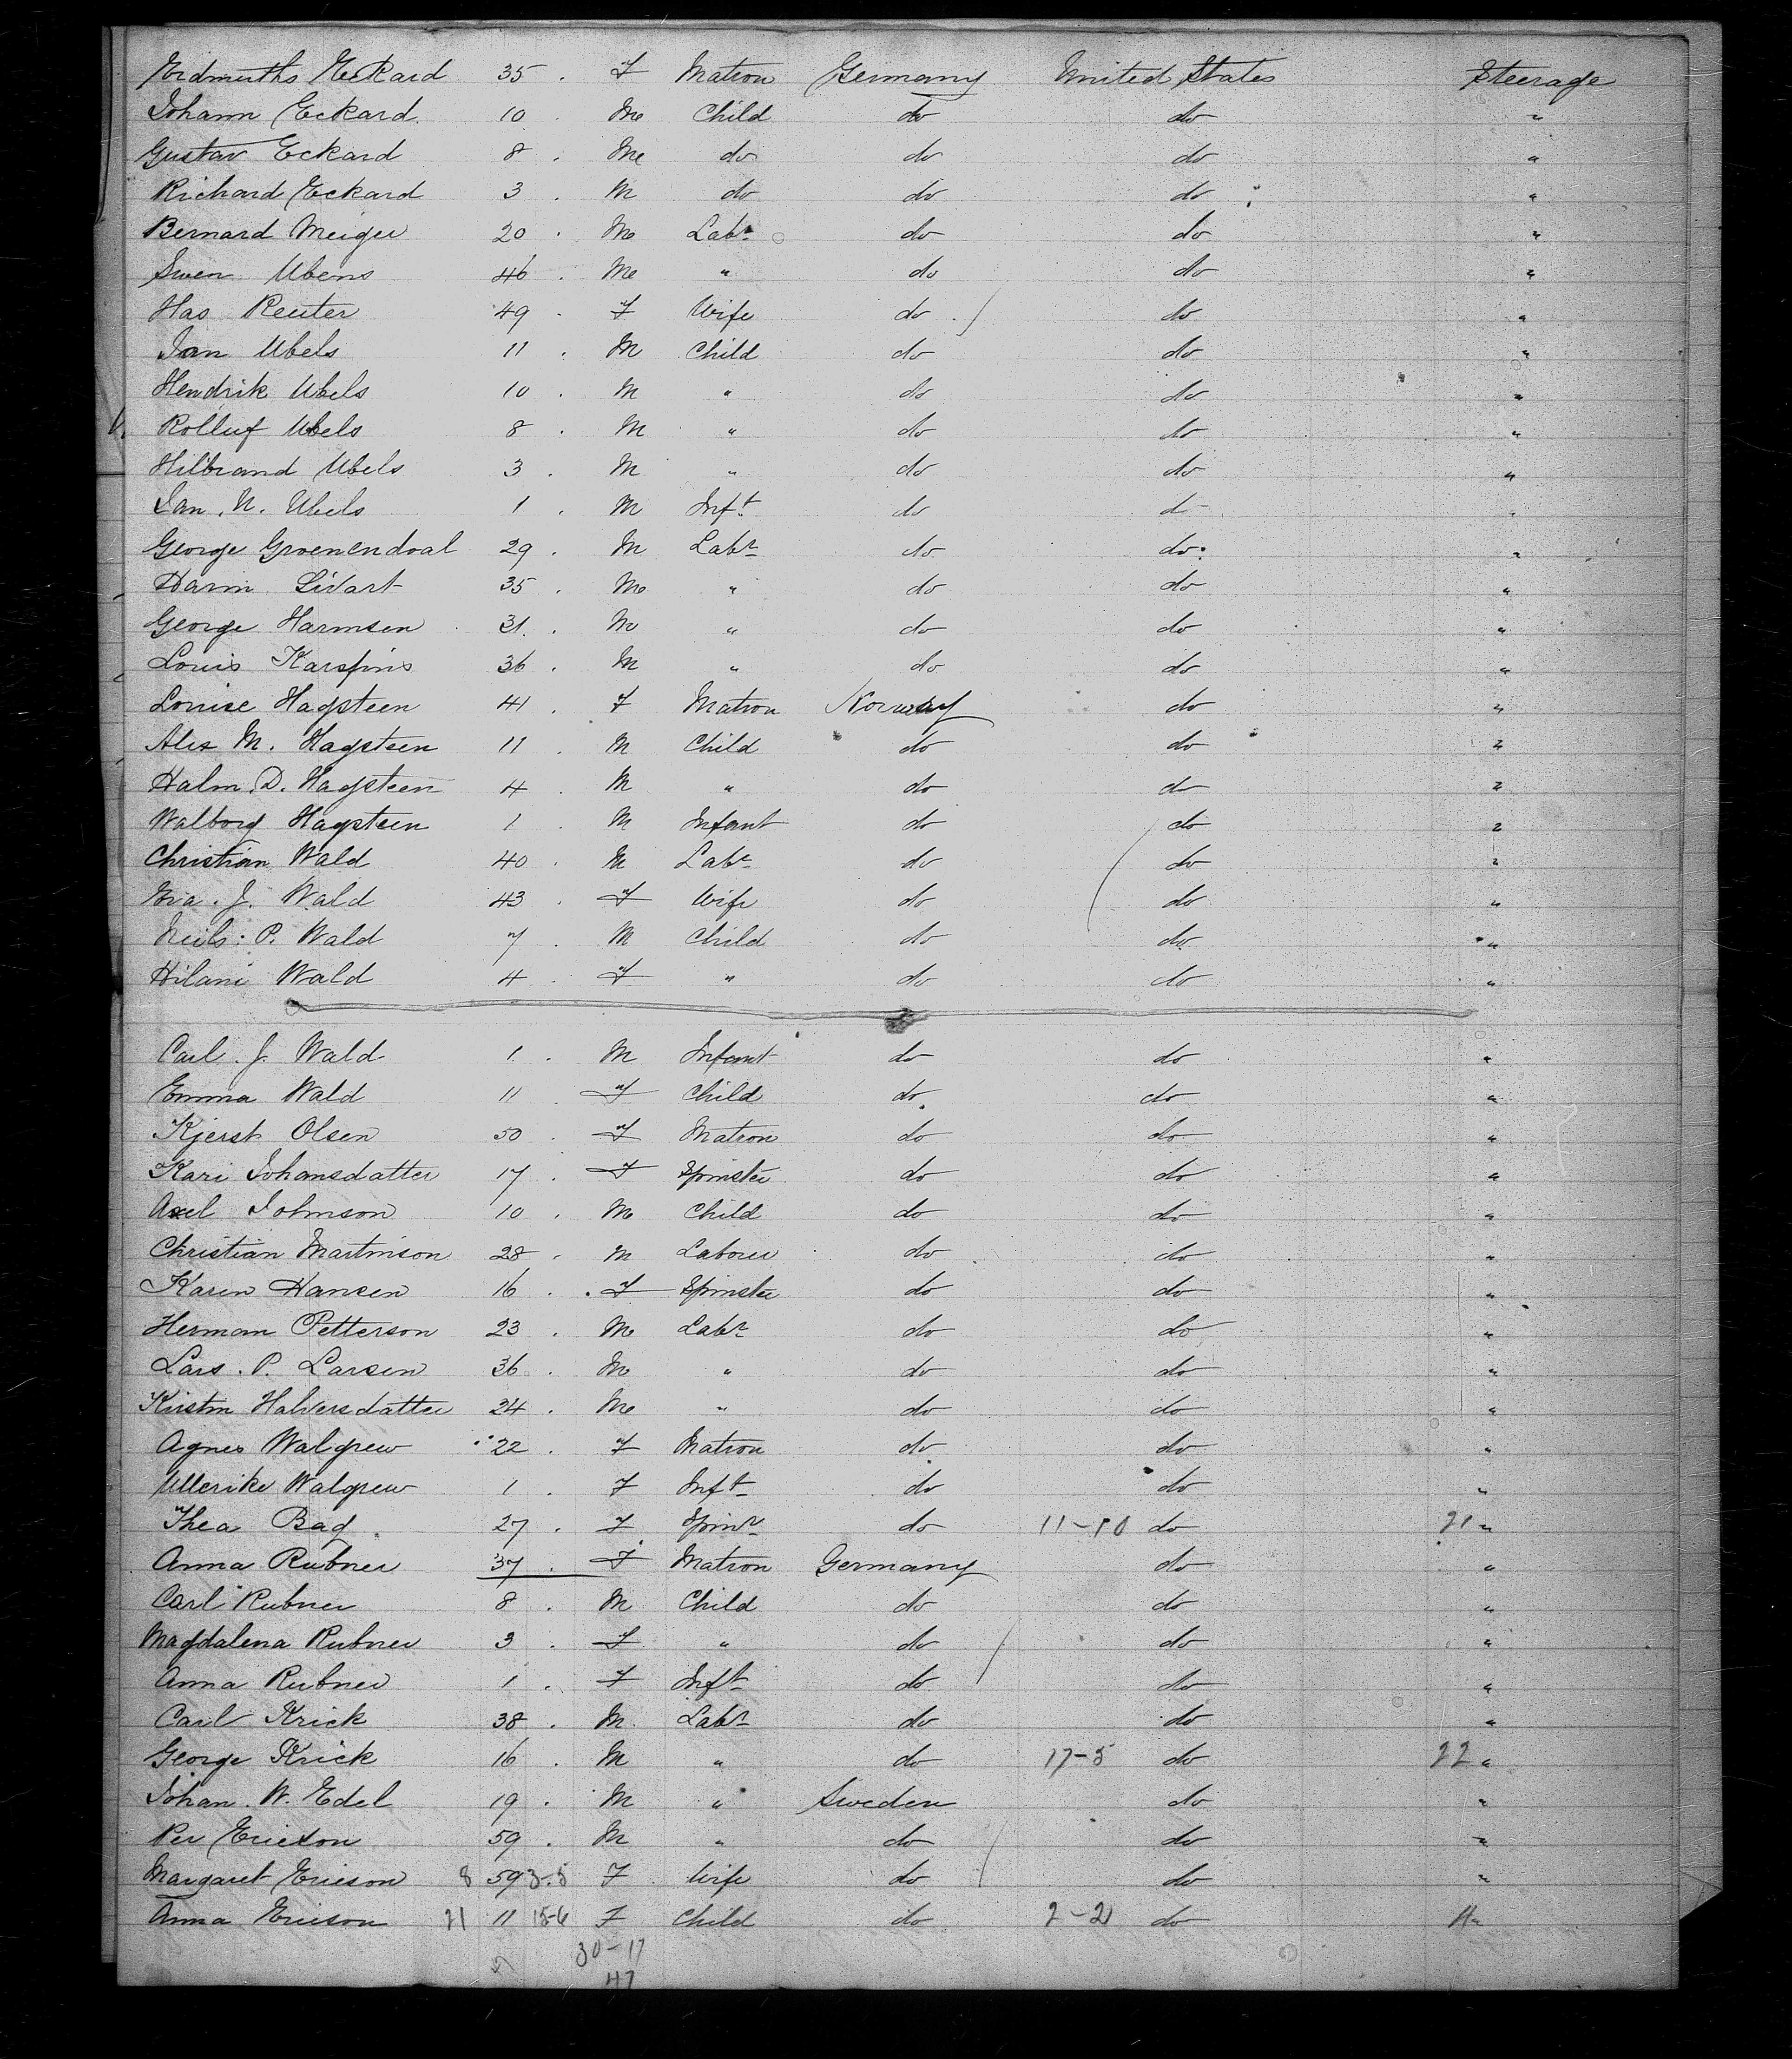 Erdmuths Eckard 35 . F Matron Germany United States Steerage
Johann Eckard 10 . M Child do do "
Gustav Eckard 8 . M do do do "
Richard Eckard 3 . M do do do "
Bernard Meiger 20 . M Labr do do "
Swen Ubens 46 . M " do do "
Has Reuter 49 . F Wife do do "
Jan Ubels 11 . M Child do do "
Hendrik Ubels 10 . M " do do "
Rolluf Ubels 8 . M " do do "
Hilbrand Ubels 3 . M " do do "
Jan. N. Ubels 1 . M Inft do do "
George Groenendoal 29 . M Labr do do "
Harm Sivart 35 . M " do do "
George Harmsen 31 . M " do do "
Louis Karsfins 36 . M " do do "
Louise Hagsteen 41 . F Matron Norway do "
Alex M. Hagsteen 11 . M Child do do "
Halm. D. Hagsteen 4 . M " do do "
Walborg Hagsteen 1 . M Infant do do "
Christian Wald 40 . M Labr do do "
J. Wald 43 . F Wife do do "
Neils. P. Wald 7 . M Child do do "
Hilani Wald 4 . F " do do "
Carl. J. Wald 1 . M Infant do do "
Emma Wald 11 . F Child do do "
Kjerst Olsen 50 . F Matron do do "
Kari Johansdatter 17 . F Spinster do do "
Axel Johnson 10 . M Child do do "
Christian Martinson 28 . M Laborer do do "
Karen Hansen 16 . F Spinster do do "
Herman Petterson 23 . M Labr do do "
Lars. P. Larsen 36 . M " do do "
Kirstin Halversdatter 24 . M " do do "
Agnes Walgrew 22 . F Matron do do "
Ullerike Walgrew 1 . F Inft do do "
Thea Bag 27 . F Spinr do 11-10 do 21 "
Anna Rubner 37 . F Matron Germany do "
Carl Rubner 8 . M Child do do "
Magdalena Rubner 3 . F " do do "
Anna Rubner 1 . F Inft do do "
Carl Krick 38 . M Labr do do "
George Krick 16 . M " do 17-5 do 22 "
Johan. W. Edel 19 . M " Sweden do "
Per Ericson 59 . M " do do "
Margaret Ericson 8 59 3-5 F Wife do do "
Anna Ericson 21 11 15-6 F Child do 2-2 do 4 "
30-17
47